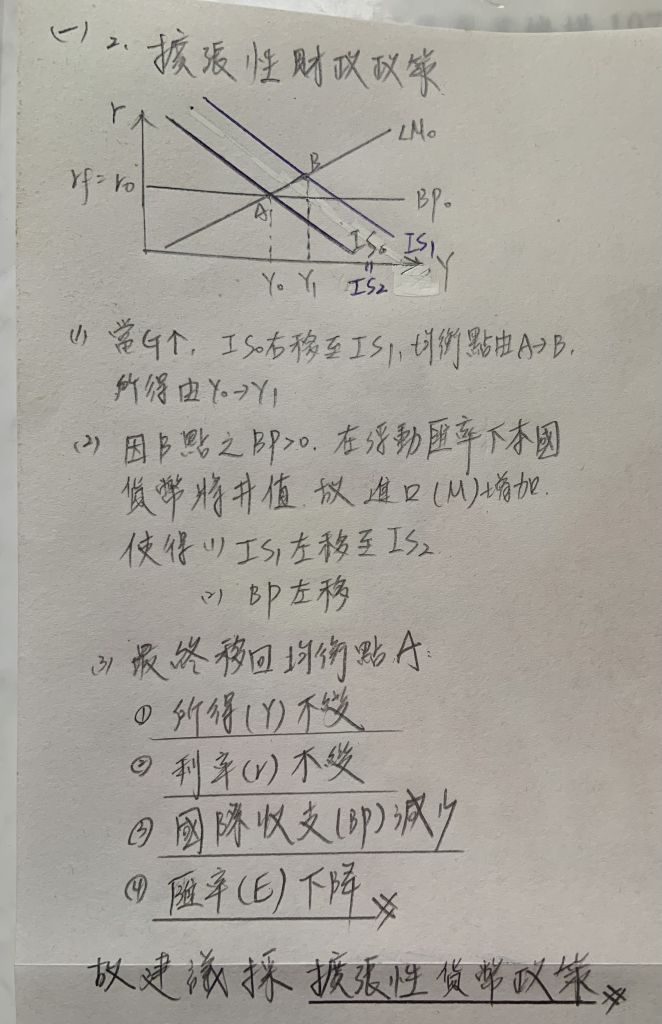 (一) 2. 擴張性財政政策
r
LM₀
rf = r₀
B
BP₀
A
IS₀ IS₁ Y
Y₀ Y₁ =
IS₂
(1) 當G↑, IS₀右移至IS₁, 均衡點由A→B,
所得由Y₀→Y₁
(2) 因B點之BP>0, 在浮動匯率下本國
貨幣將升值 故進口(M)增加.
使得 (1) IS₁左移至IS₂
(2) BP左移
(3) 最終移回均衡點A:
① 所得(Y)不變
② 利率(r)不變
③ 國際收支(BP)減少
④ 匯率(E)下降
故建議採擴張性貨幣政策